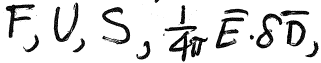 F, U, S, \frac{1}{4\pi} \overline{E} \cdot \delta \overline{D},